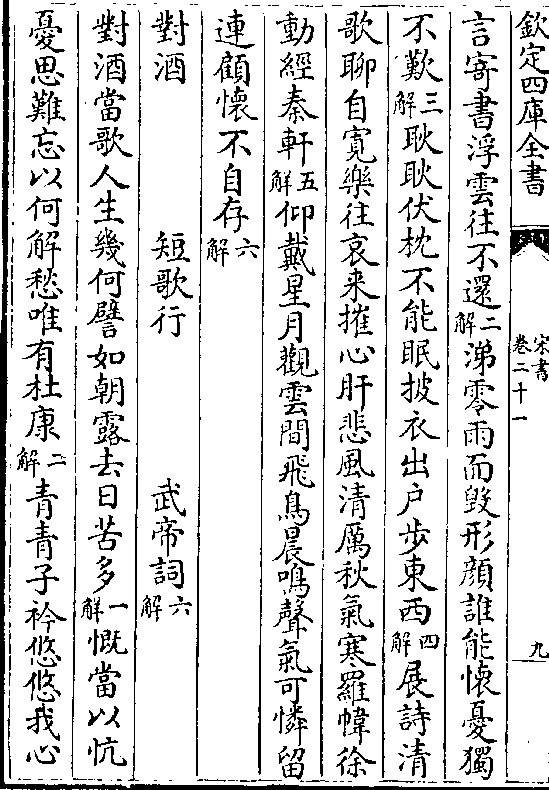 欽定四庫全書
宋書
卷二十一
九
言寄書浮雲往不還二解涕零雨而毀形顔誰能懷憂獨
不歎三解耿耿伏枕不能眠披衣出户步東西四解展詩清
歌聊自寛樂往哀来摧心肝悲風清厲秋氣寒羅幃徐
動經秦軒五解仰戴星月觀雲間飛鳥晨鳴聲氣可憐留
連顧懷不自存六解
對酒 短歌行 武帝詞六解
對酒當歌人生幾何譬如朝露去日苦多一解慨當以忼
憂思難忘以何解愁唯有杜康二解青青子衿悠悠我心